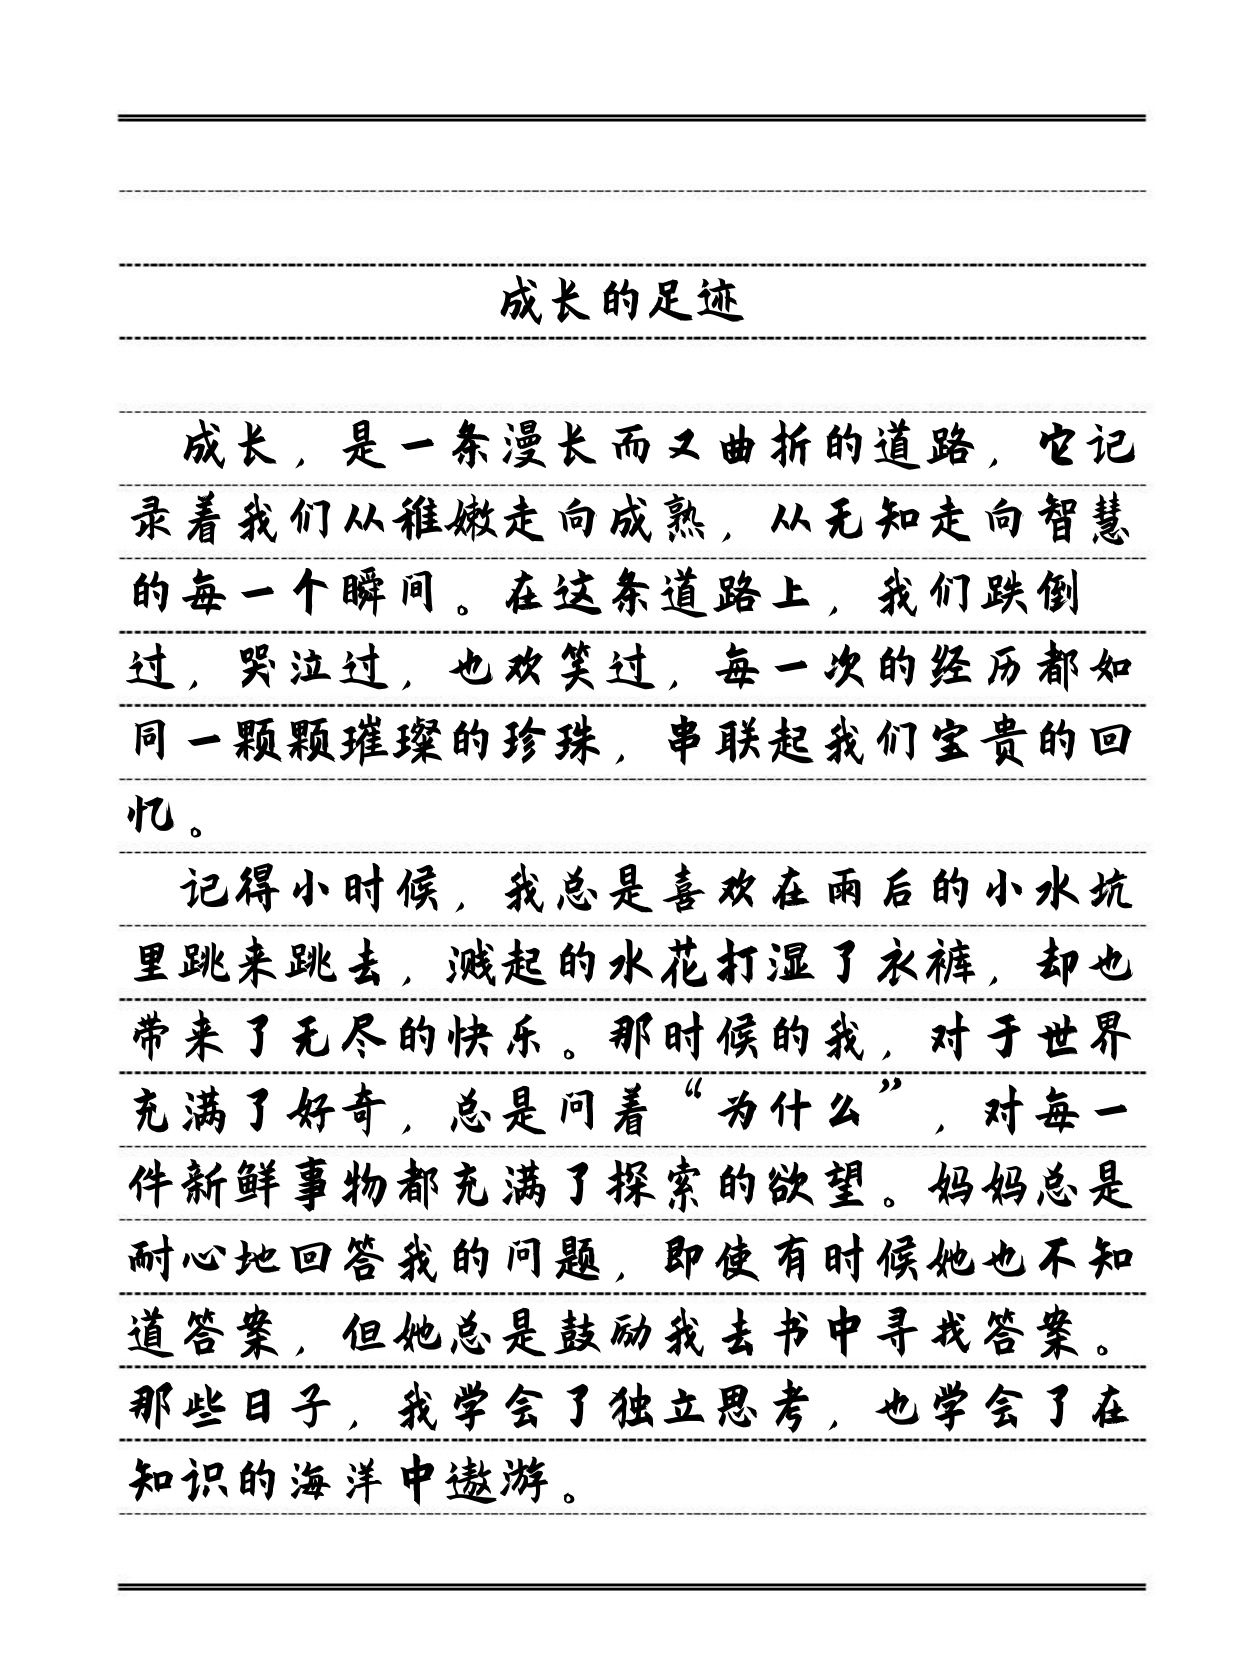 成长的足迹
成长，是一条漫长而又曲折的道路，它记
录着我们从稚嫩走向成熟，从无知走向智慧
的每一个瞬间。在这条道路上，我们跌倒
过，哭泣过，也欢笑过，每一次的经历都如
同一颗颗璀璨的珍珠，串联起我们宝贵的回
忆。
记得小时候，我总是喜欢在雨后的小水坑
里跳来跳去，溅起的水花打湿了衣裤，却也
带来了无尽的快乐。那时候的我，对于世界
充满了好奇，总是问着“为什么”，对每一
件新鲜事物都充满了探索的欲望。妈妈总是
耐心地回答我的问题，即使有时候她也不知
道答案，但她总是鼓励我去书中寻找答案。
那些日子，我学会了独立思考，也学会了在
知识的海洋中遨游。